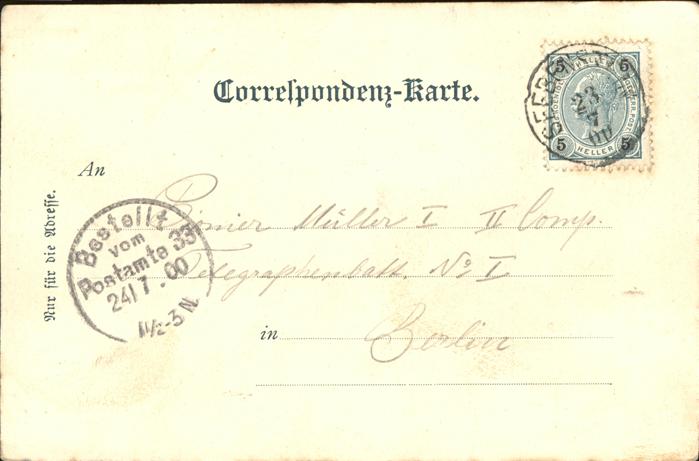 Correspondenz-Karte.
5 5
HELLER
5 5
23
7
00
An
Pionier Müller I II Comp.
Telegraphenbatt. No I
in Berlin
Nur für die Adresse.
Bestellt
vom
Postamte 33
24/7.00
1½-3 N